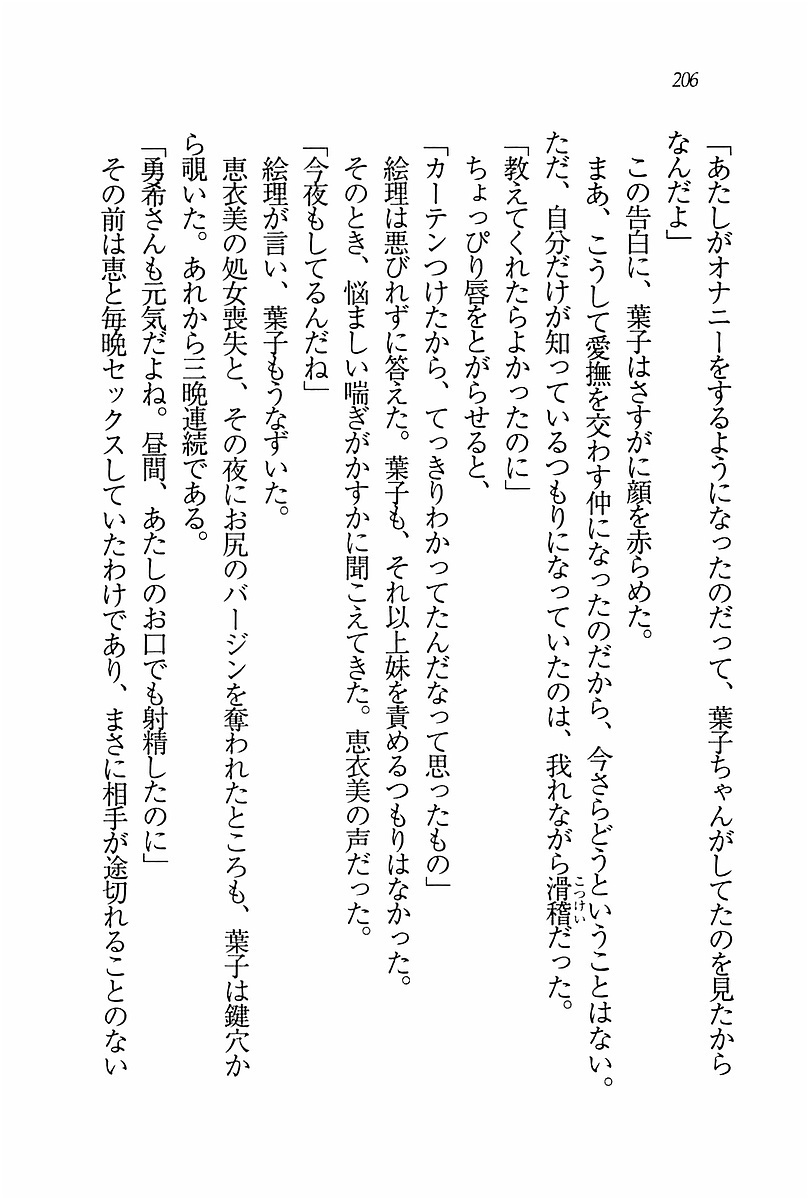 206
「あたしがオナニーをするようになったのだって、葉子ちゃんがしてたのを見たから
なんだよ」
この告白に、葉子はさすがに顔を赤らめた。
まあ、こうして愛撫を交わす仲になったのだから、今さらどうということはない。
ただ、自分だけが知っているつもりになっていたのは、我れながら滑稽だった。
こっけい
「教えてくれたらよかったのに」
ちょっぴり唇をとがらせると、
「カーテンつけたから、てっきりわかってたんだなって思ったもの」
絵理は悪びれずに答えた。葉子も、それ以上妹を責めるつもりはなかった。
そのとき、悩ましい喘ぎがかすかに聞こえてきた。恵衣美の声だった。
「今夜もしてるんだね」
絵理が言い、葉子もうなずいた。
恵衣美の処女喪失と、その夜にお尻のバージンを奪われたところも、葉子は鍵穴か
ら覗いた。あれから三晩連続である。
「勇希さんも元気だよね。昼間、あたしのお口でも射精したのに」
その前は恵と毎晩セックスしていたわけであり、まさに相手が途切れることのない